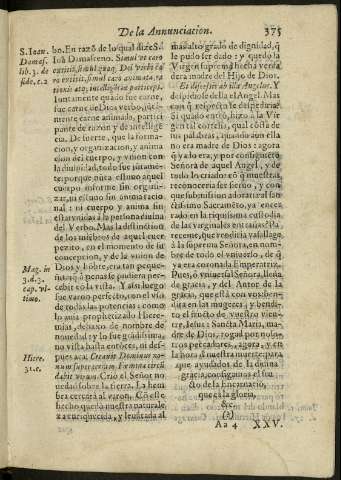 De la Annunciacion. 375
S. Ioan.
Damas.
lib. 3. de
fide. c. 2
bo. En razõ de lo qual dize S.
Ioã Damasceno. Simul vt caro
extitit, simul
extitit, simul caro animata, ra
tionis
Iuntamente quãdo fue carne,
fue carne de Dios verbo, jũta-
mente carne animada, partici-
pante de razon y de intelligē
cia. De fuerte, que la forma-
cion, y organizacion, y anima
cion del cuerpo, y vnion con
la diuinidad, todo
te; porque nũca estuuo aquel
cuerpo informe sin organi-
zar, ni estuuo sin anima racio
nal; ni cuerpo y anima sin
estar vnidas a la persona diuina
del Verbo. Mas la distinction
de los miēbros de aquel cuer-
pezito, en el momento de su
concepcion, y de la vnion de
Dios y hõbre, era tan peque-
ña, q̃ a penas se pudiera per-
cebir cõ la vista. Y assi luego
fue varon perfecto, con el vso
de todas las potencias: como
lo auia prophetizado Hiere-
mias, debaxo de nombre de
nouedad
Mag. in
3. d. 3.
cap. vl-
timo.
Hiere.
31. c.
pues aca: Creauit Dominus no-
uum super terram: Fœmina circũ
dabit virum. Criò el Señor no
uedad sobre la tierra. La hem
bra cercarà al varon. Cõ este
hecho quedò nuestra naturale
za enriquecida, y leuãtada al
mas alto grado de dignidad, q̃
le pudo ser dado: y quedò la
Virgen suprema hecha verda
dera madre del Hijo de Dios.
Et discessit ab illa Angelus. Y
despidiose de ella el Angel. Mas
con q̃ respecto
Si quãdo entrò, hizo a la Vir
gen tal cortesia, qual cõsta de
sus palabras; y quando aun ella
no era madre de Dios: agora
q̃ ya lo era, y por consiguiente
Señora de aquel Angel, y de
todo lo criado
reconoceria ser sieruo, y con
que submission adoraria al san
ctissimo Sacramēto, ya encer-
rado en la riquissima custodia
de las virginales entrañas: sta
receme, que rendiria vassallage
a la suprema Señora, en nom-
bre de todo el vniuerso, de q̃
ya era coronada Emperatriz.
Pues, ò vniuersal Señora, llena
de gracia, y del Autor de la
gracia, que està con vos, bendi-
ta en las mugeres, y bendito
el fructo de vuestro vien-
tre, Iesus: Sancta Maria, ma-
dre de Dios, rogad por noso-
tros peccadores, agora, y en
la hora de nuestra muerte: para
que ayudados de la diuina
gracia, consigamos el fru
cto de la Encarnacio,
que es la gloria,
&c.
(?)
Aa 4 XXV.